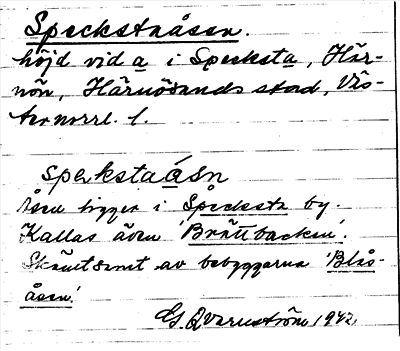 Speckstaåsen.
höjd vid a i Specksta, Här-
nön, Härnösands stad, Väs-
ternorrl. l.
Spekstaåsn
Åsen ligger i Specksta by.
Kallas även 'Brattbacken'.
Skämtsamt av bebyggarna 'Blås-
åsen'.
G. Qvarnström 1942